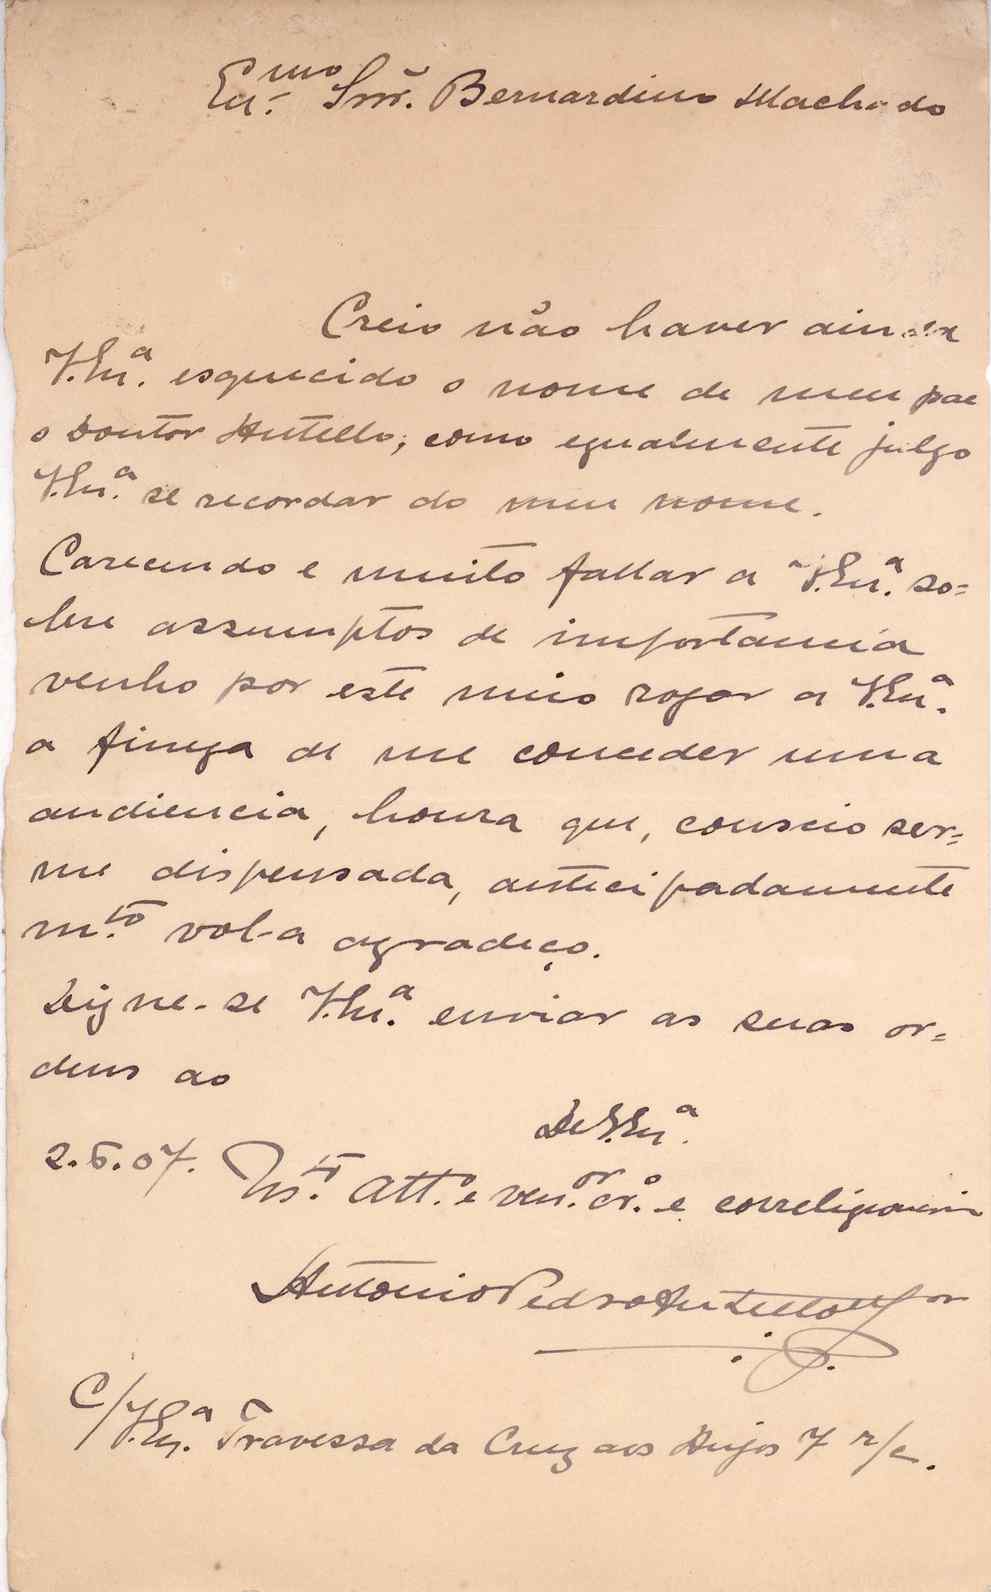 Ex.mo Snr. Bernardino Machado
Creio não haver ainda
V.Ex.a esquecido o nome de meu pae
o Doutor Antello, como egualmente julgo
V.Ex.a se recordar do meu nome.
Carecendo e muito fallar a V.Ex.a so=
bre assumptos de importancia
venho por este meio rogar a V.Ex.a
a fineza de me conceder uma
audiencia, honra que, conscio ser=
me dispensada, antecipadamente
m.to vol-a agradeço.
Digne-se V.Ex.a enviar as suas or=
dens ao
De V.Ex.a
2.6.07. M.to Att.o e ven.or cr.o e correligionario
Antonio Pedro Antello
C/V.Ex.a Travessa da Cruz aos Anjos 7 r/c.